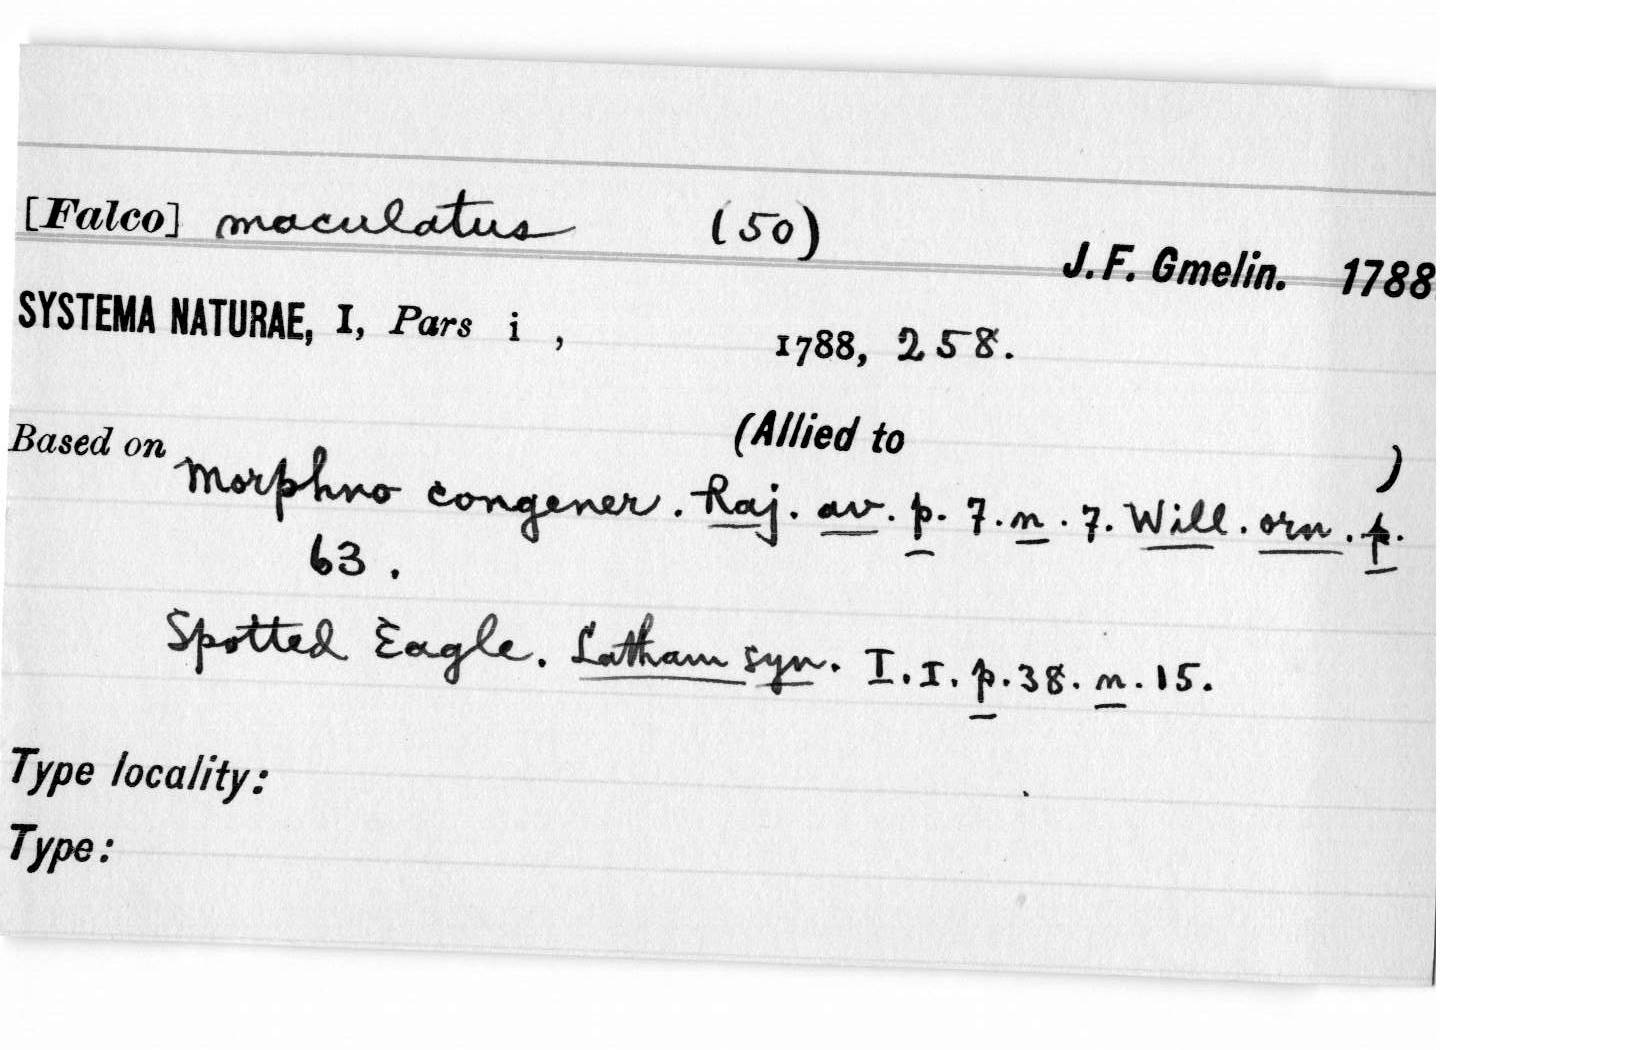 [Falco] maculatus (50)
J. F. Gmelin. 1788
SYSTEMA NATURAE, I, Pars i , 1788, 258.
(Allied to )
Based on Morphno congener. Raj. av. p. 7. n. 7. Will. orn. p.
63.
Spotted Eagle. Latham syn. I. I. p. 38. n. 15.
Type locality:
Type: